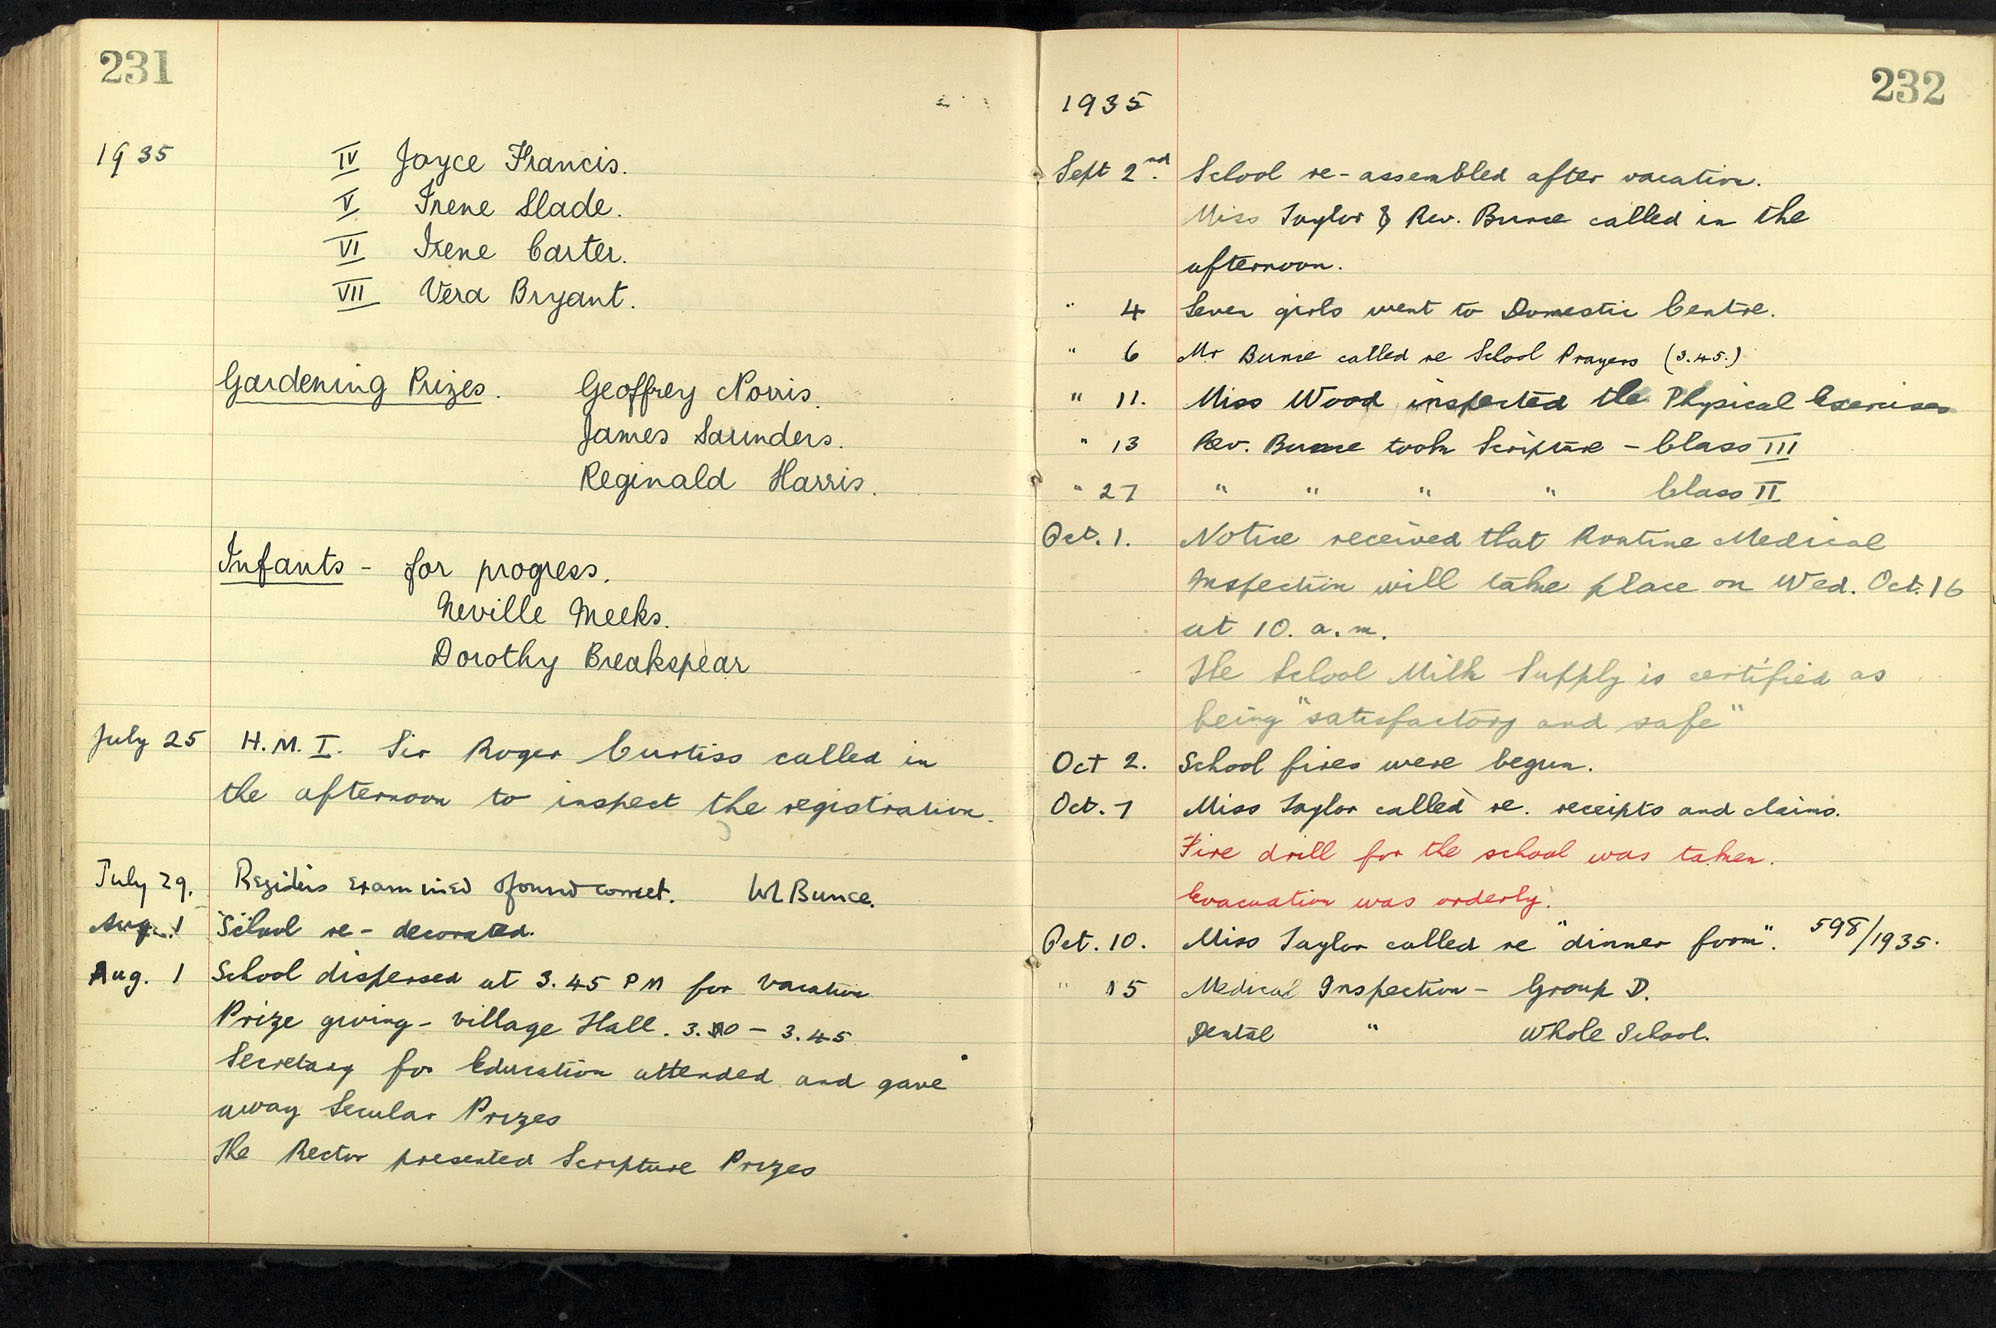 231
1935
IV Joyce Francis.
V Irene Slade.
VI Irene Carter.
VII Vera Bryant.
Gardening Prizes. Geoffrey Norris.
James Saunders.
Reginald Harris.
Infants - for progress.
Neville Meeks.
Dorothy Breakspear
July 25 H.M.I. Sir Roger Curtiss called in
the afternoon to inspect the registration.
July 29. Registers examined & found correct. W Bunce.
Aug. 1 School re-decorated.
Aug. 1 School dispersed at 3.45 PM for vacation
Prize giving - village Hall. 3. - 3.45
Secretary for Education attended and gave
away Secular Prizes
The Rector presented Scripture Prizes
232
1935
Sept 2nd. School re-assembled after vacation.
Miss Taylor & Rev. Bunce called in the
afternoon.
" 4 Seven girls went to Domestic Centre.
" 6 Mr Bunce called re School Prayers (3.45.)
" 11. Miss Wood inspected the Physical Exercises
" 13 Rev. Bunce took Scripture - Class III
" 27 " " " " Class II
Oct. 1. Notice received that Routine Medical
Inspection will take place on Wed. Oct. 16
at 10. a.m.
The School Milk Supply is certified as
being "satisfactory and safe"
Oct 2. School fires were begun.
Oct. 7 Miss Taylor called re. receipts and claims.
Fire drill for the school was taken.
Evacuation was orderly.
Oct. 10. Miss Taylor called re "dinner form". 598/1935.
" 15 Medical Inspection - Group D.
Dental " Whole School.